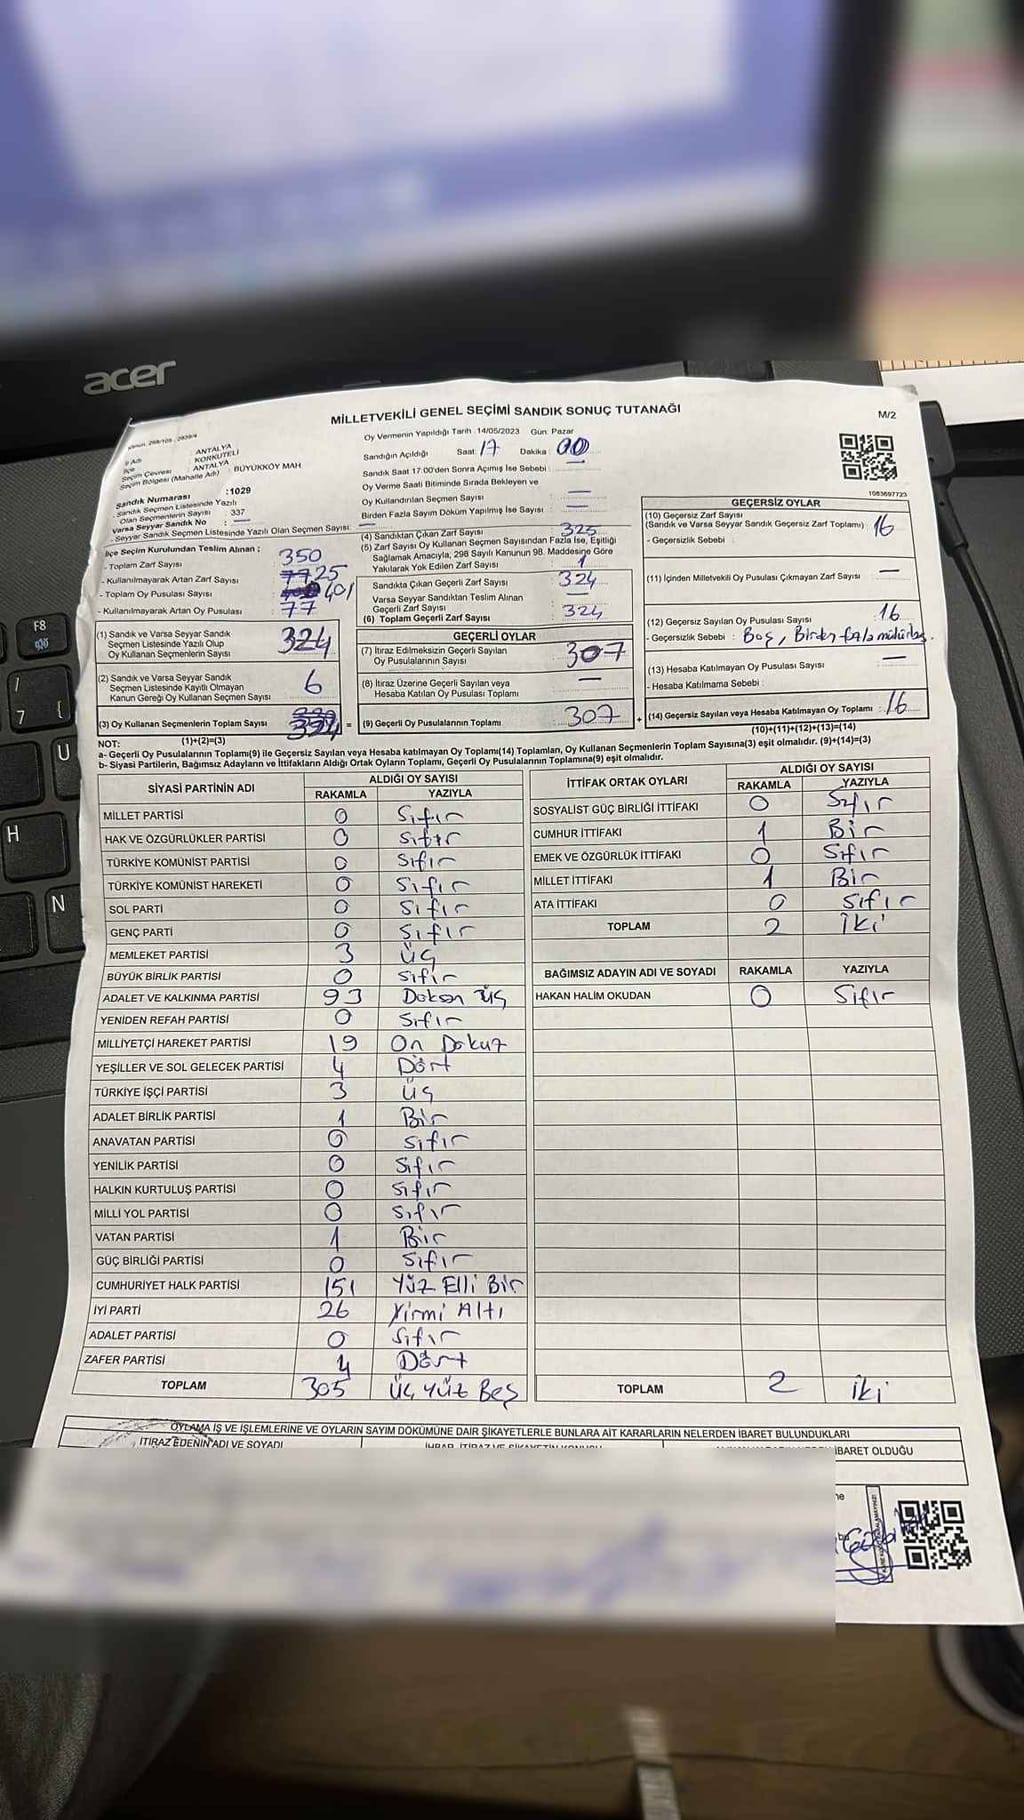 acer
MİLLETVEKİLİ GENEL SEÇİMİ SANDIK SONUÇ TUTANAĞI
M/2
İl Adı ANTALYA
İlçe KORKUTELİ
Seçim Çevresi : ANTALYA
Seçim Bölgesi (Mahalle Adı) : BÜYÜKKÖY MAH
Sandık Numarası :1029
Sandık Seçmen Listesinde Yazılı
Olan Seçmenlerin Sayısı : 337
Varsa Seyyar Sandık No : —
Seyyar Sandık Seçmen Listesinde Yazılı Olan Seçmen Sayısı: —
Oy Vermenin Yapıldığı Tarih :14/05/2023 Gün: Pazar
Sandığın Açıldığı Saat: 17 Dakika 00
Sandık Saat 17:00'den Sonra Açımış İse Sebebi : —
Oy Verme Saati Bitiminde Sırada Bekleyen ve
Oy Kullandırılan Seçmen Sayısı : —
Birden Fazla Sayım Döküm Yapılmış İse Sayısı : —
1083697723
İlçe Seçim Kurulundan Teslim Alınan ;
- Toplam Zarf Sayısı : 350
- Kullanılmayarak Artan Zarf Sayısı : 25
- Toplam Oy Pusulası Sayısı : 401
- Kullanılmayarak Artan Oy Pusulası : 77
(1) Sandık ve Varsa Seyyar Sandık
Seçmen Listesinde Yazılı Olup
Oy Kullanan Seçmenlerin Sayısı 324
(2) Sandık ve Varsa Seyyar Sandık
Seçmen Listesinde Kayıtlı Olmayan
Kanun Gereği Oy Kullanan Seçmen Sayısı 6
(3) Oy Kullanan Seçmenlerin Toplam Sayısı =
(1)+(2)=(3)
(4) Sandıktan Çıkan Zarf Sayısı 325
(5) Zarf Sayısı Oy Kullanan Seçmen Sayısından Fazla İse, Eşitliği
Sağlamak Amacıyla, 298 Sayılı Kanunun 98. Maddesine Göre
Yakılarak Yok Edilen Zarf Sayısı : 1
Sandıkta Çıkan Geçerli Zarf Sayısı 324
Varsa Seyyar Sandıktan Teslim Alınan
Geçerli Zarf Sayısı —
(6) Toplam Geçerli Zarf Sayısı 324
GEÇERLİ OYLAR
(7) İtiraz Edilmeksizin Geçerli Sayılan
Oy Pusulalarının Sayısı 307
(8) İtiraz Üzerine Geçerli Sayılan veya
Hesaba Katılan Oy Pusulası Toplamı —
(9) Geçerli Oy Pusulalarının Toplamı 307 +
GEÇERSİZ OYLAR
(10) Geçersiz Zarf Sayısı
(Sandık ve Varsa Seyyar Sandık Geçersiz Zarf Toplamı) 16
- Geçersizlik Sebebi :
(11) İçinden Milletvekili Oy Pusulası Çıkmayan Zarf Sayısı —
(12) Geçersiz Sayılan Oy Pusulası Sayısı 16
- Geçersizlik Sebebi : Boş, Birden fazla
(13) Hesaba Katılmayan Oy Pusulası Sayısı —
- Hesaba Katılmama Sebebi :
(14) Geçersiz Sayılan veya Hesaba Katılmayan Oy Toplamı : 16
(10)+(11)+(12)+(13)=(14)
NOT:
a- Geçerli Oy Pusulalarının Toplamı(9) ile Geçersiz Sayılan veya Hesaba katılmayan Oy Toplamı(14) Toplamları, Oy Kullanan Seçmenlerin Toplam Sayısına(3) eşit olmalıdır. (9)+(14)=(3)
b- Siyasi Partilerin, Bağımsız Adayların ve İttifakların Aldığı Ortak Oyların Toplamı, Geçerli Oy Pusulalarının Toplamına(9) eşit olmalıdır.
SİYASİ PARTİNİN ADI ALDIĞI OY SAYISI
RAKAMLA YAZIYLA
MİLLET PARTİSİ 0 Sıfır
HAK VE ÖZGÜRLÜKLER PARTİSİ 0 Sıfır
TÜRKİYE KOMÜNİST PARTİSİ 0 Sıfır
TÜRKİYE KOMÜNİST HAREKETİ 0 Sıfır
SOL PARTİ 0 Sıfır
GENÇ PARTİ 0 Sıfır
MEMLEKET PARTİSİ 3 Üç
BÜYÜK BİRLİK PARTİSİ 0 Sıfır
ADALET VE KALKINMA PARTİSİ 93 Doksan Üç
YENİDEN REFAH PARTİSİ 0 Sıfır
MİLLİYETÇİ HAREKET PARTİSİ 19 On Dokuz
YEŞİLLER VE SOL GELECEK PARTİSİ 4 Dört
TÜRKİYE İŞÇİ PARTİSİ 3 Üç
ADALET BİRLİK PARTİSİ 1 Bir
ANAVATAN PARTİSİ 0 Sıfır
YENİLİK PARTİSİ 0 Sıfır
HALKIN KURTULUŞ PARTİSİ 0 Sıfır
MİLLİ YOL PARTİSİ 0 Sıfır
VATAN PARTİSİ 1 Bir
GÜÇ BİRLİĞİ PARTİSİ 0 Sıfır
CUMHURİYET HALK PARTİSİ 151 Yüz Elli Bir
İYİ PARTİ 26 Yirmi Altı
ADALET PARTİSİ 0 Sıfır
ZAFER PARTİSİ 4 Dört
TOPLAM 305 Üç Yüz Beş
İTTİFAK ORTAK OYLARI ALDIĞI OY SAYISI
RAKAMLA YAZIYLA
SOSYALİST GÜÇ BİRLİĞİ İTTİFAKI 0 Sıfır
CUMHUR İTTİFAKI 1 Bir
EMEK VE ÖZGÜRLÜK İTTİFAKI 0 Sıfır
MİLLET İTTİFAKI 1 Bir
ATA İTTİFAKI 0 Sıfır
TOPLAM 2 İki
BAĞIMSIZ ADAYIN ADI VE SOYADI RAKAMLA YAZIYLA
HAKAN HALİM OKUDAN 0 Sıfır
TOPLAM 2 İki
OYLAMA İŞ VE İŞLEMLERİNE VE OYLARIN SAYIM DÖKÜMÜNE DAİR ŞİKAYETLERLE BUNLARA AİT KARARLARIN NELERDEN İBARET BULUNDUKLARI
İTİRAZ EDENİN ADI VE SOYADI
İBARET OLDUĞU
F8
7
U
H
N